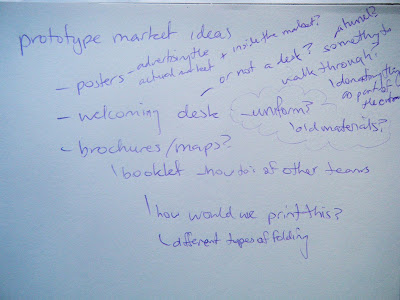 prototype market ideas
– posters – advertising the actual market + inside the market?
– welcoming desk – or not a desk? something to walk through?
a tunnel?
– uniform?
old materials?
– brochures/maps?
booklet – how to's of other teams
how would we print this?
different types of folding